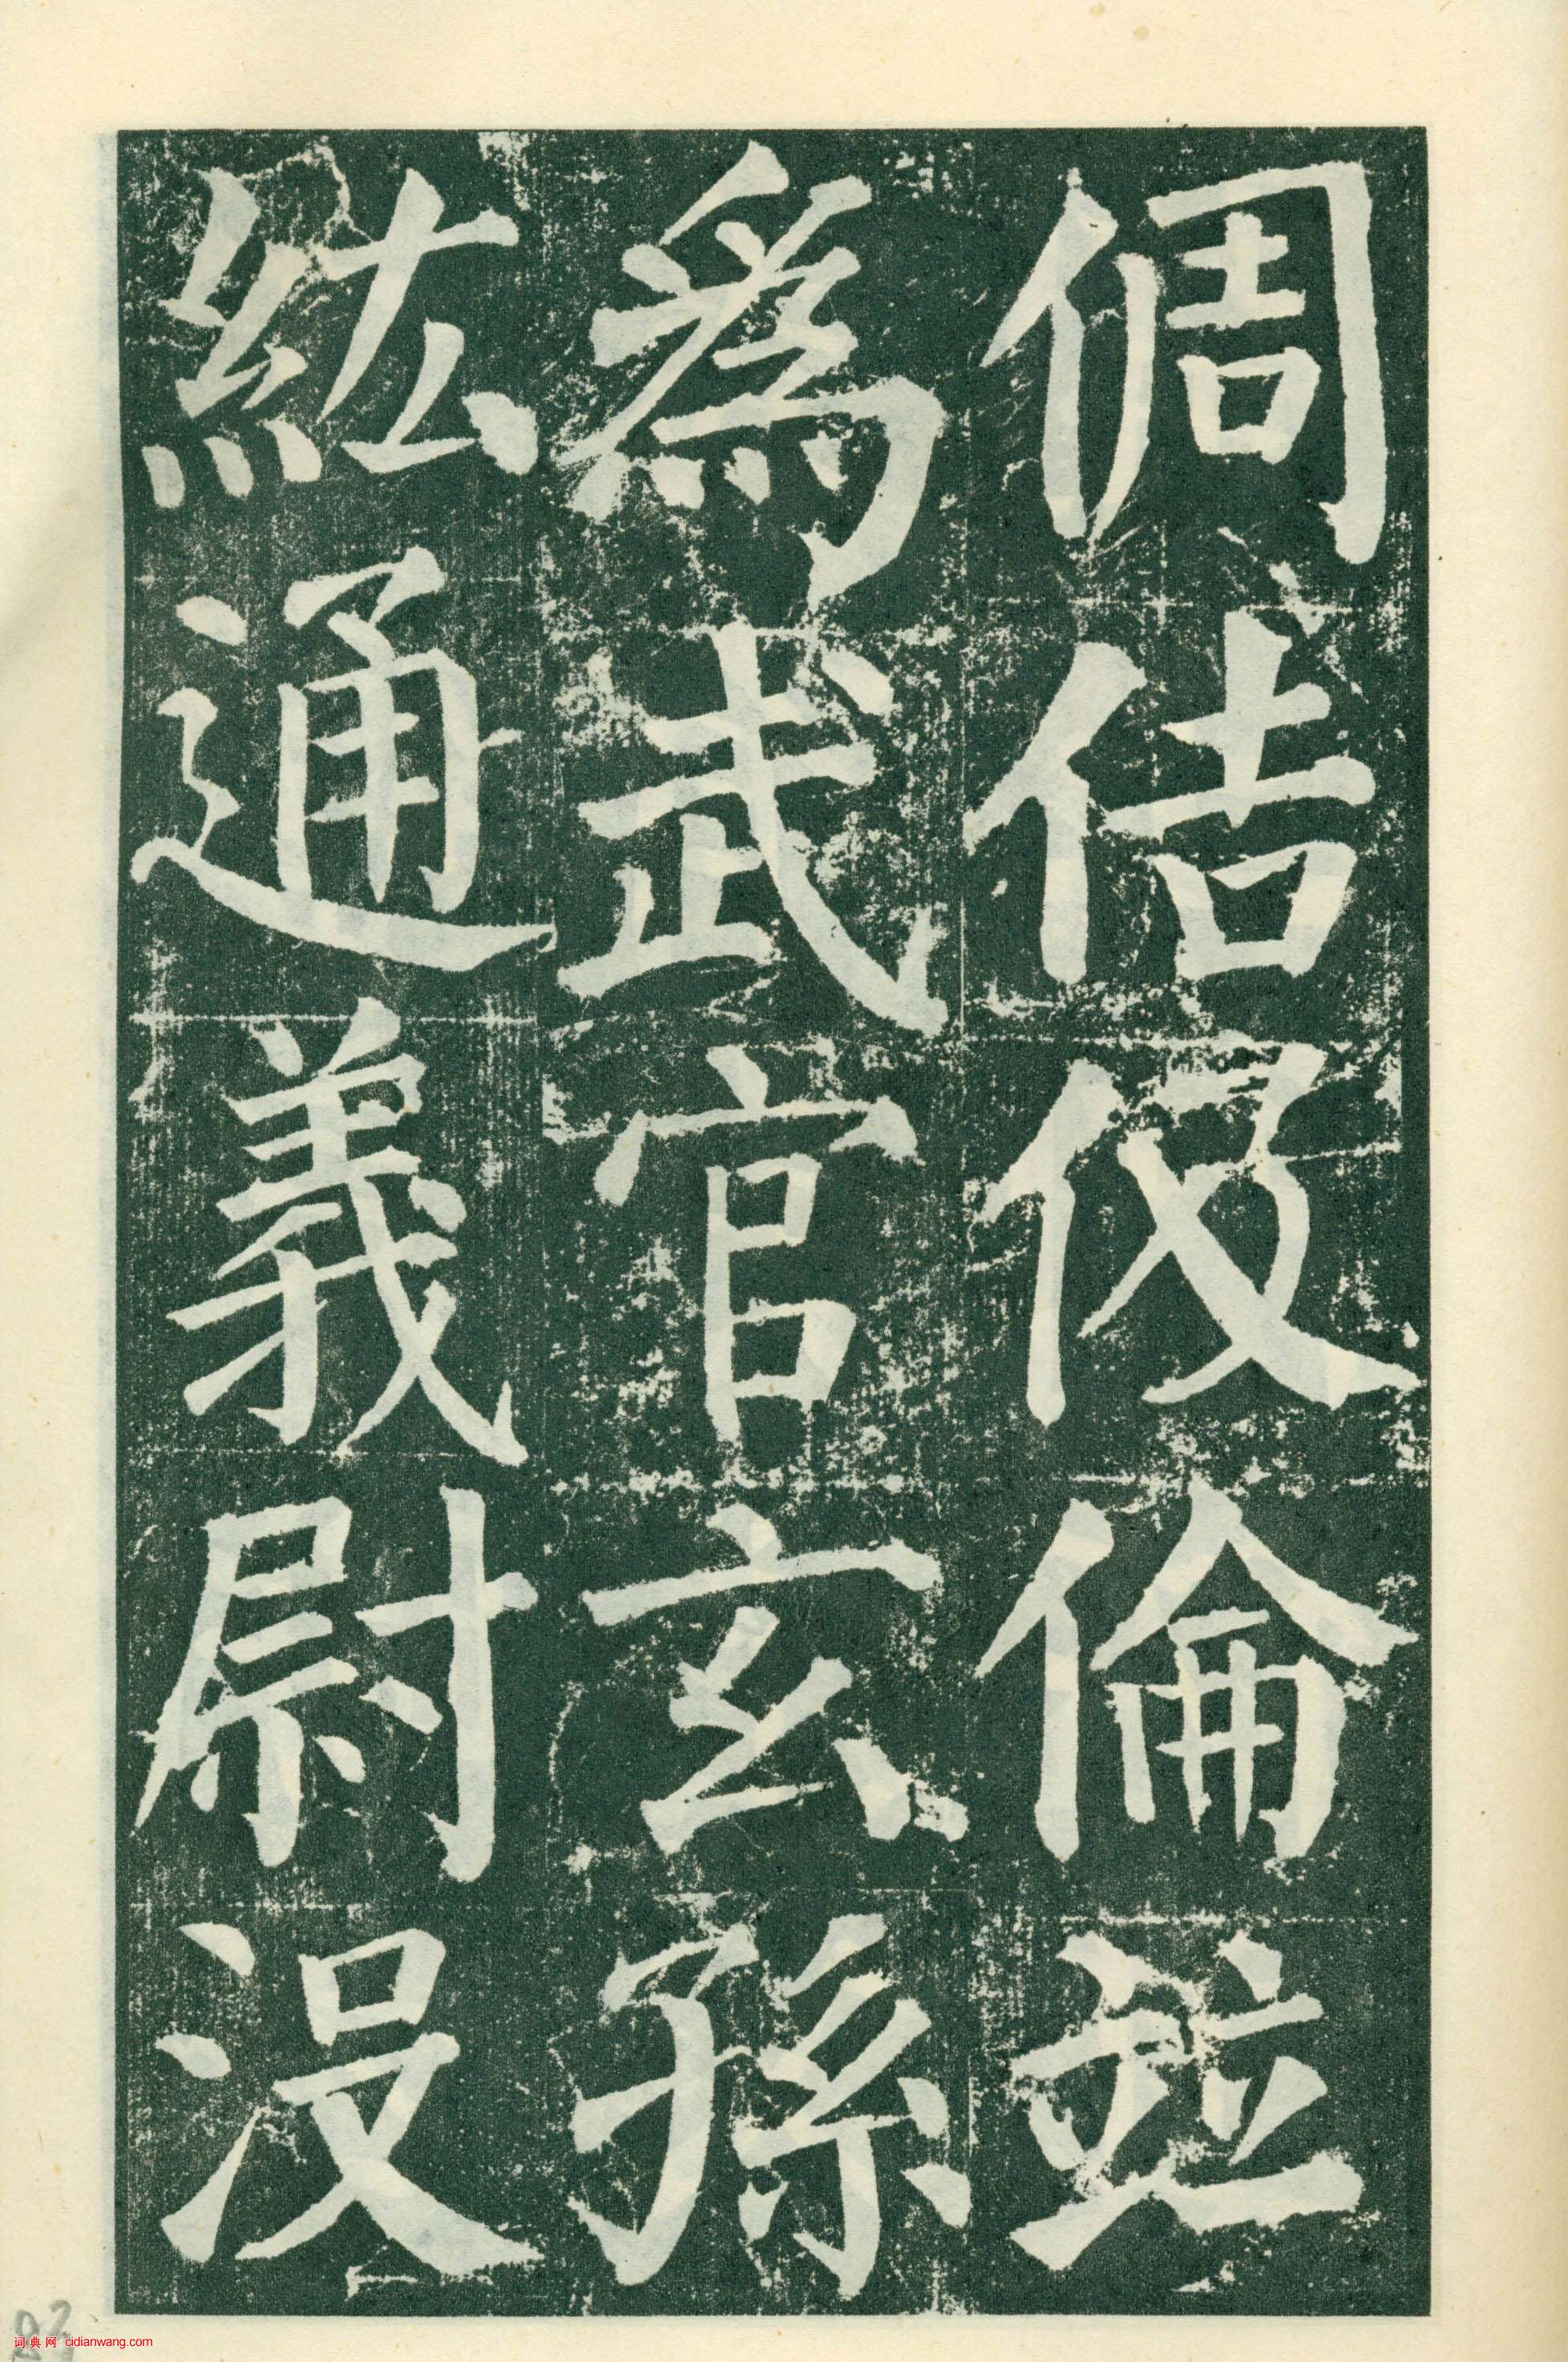 倜佶伋倫並
為武官玄孫
紘通義尉没
词典网 cidianwang.com